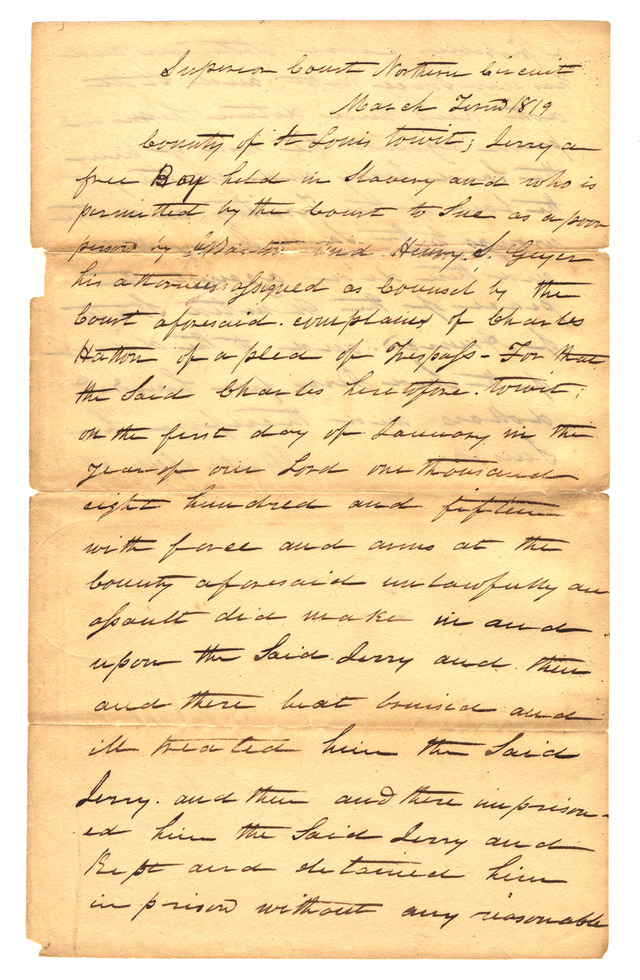 Superior Court Northern Circuit
March Term 1819
County of St Louis towit; Jerry a
free Boy held in Slavery and who is
permitted by the Court to Sue as a poor
person by Barton and Henry S. Geyer
his attornies assigned as Counsel by the
Court aforesaid. complains of Charles
Hatton of a plea of Trespass - For that
the Said Charles heretofore. towit;
on the first day of January in the
year of our Lord one thousand
eight hundred and fifteen
with force and arms at the
County aforesaid unlawfully an
assault did make in and
upon the Said Jerry and then
and there beat bruised and
ill treated him the Said
Jerry. and then and there imprison-
ed him the Said Jerry and
Kept and detained him
in prison without any reasonable